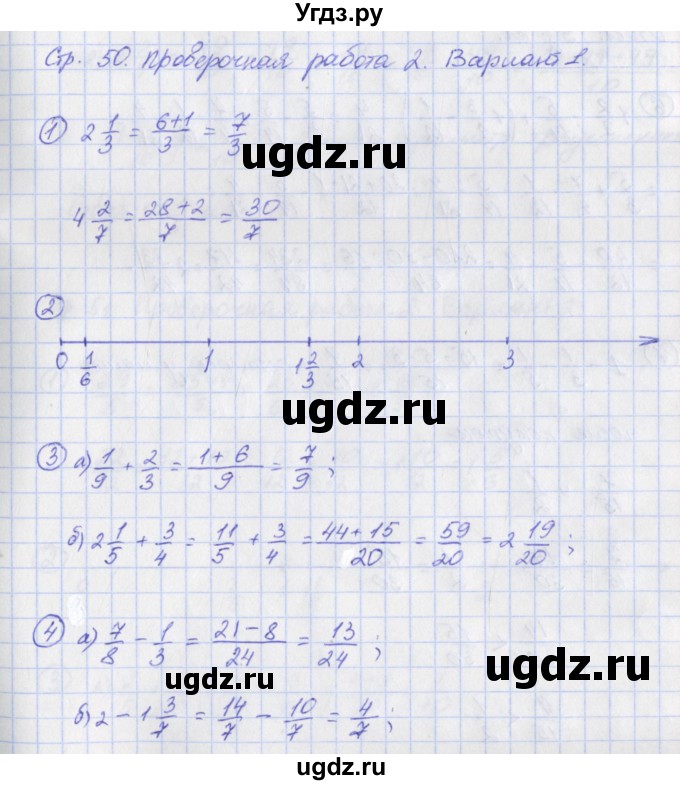 Угдз.ру
Стр. 50. Проверочная работа 2. Вариант 1.
① 2 1/3 = (6+1)/3 = 7/3
ugdz.ru
4 2/7 = (28+2)/7 = 30/7
②
0 1/6 1 1 2/3 2 3
ugdz.ru
③ а) 1/9 + 2/3 = (1+6)/9 = 7/9 ;
б) 2 1/5 + 3/4 = 11/5 + 3/4 = (44+15)/20 = 59/20 = 2 19/20 ;
④ а) 7/8 - 1/3 = (21-8)/24 = 13/24 ;
ugdz.ru
б) 2 - 1 3/7 = 14/7 - 10/7 = 4/7 ;
ugdz.ru